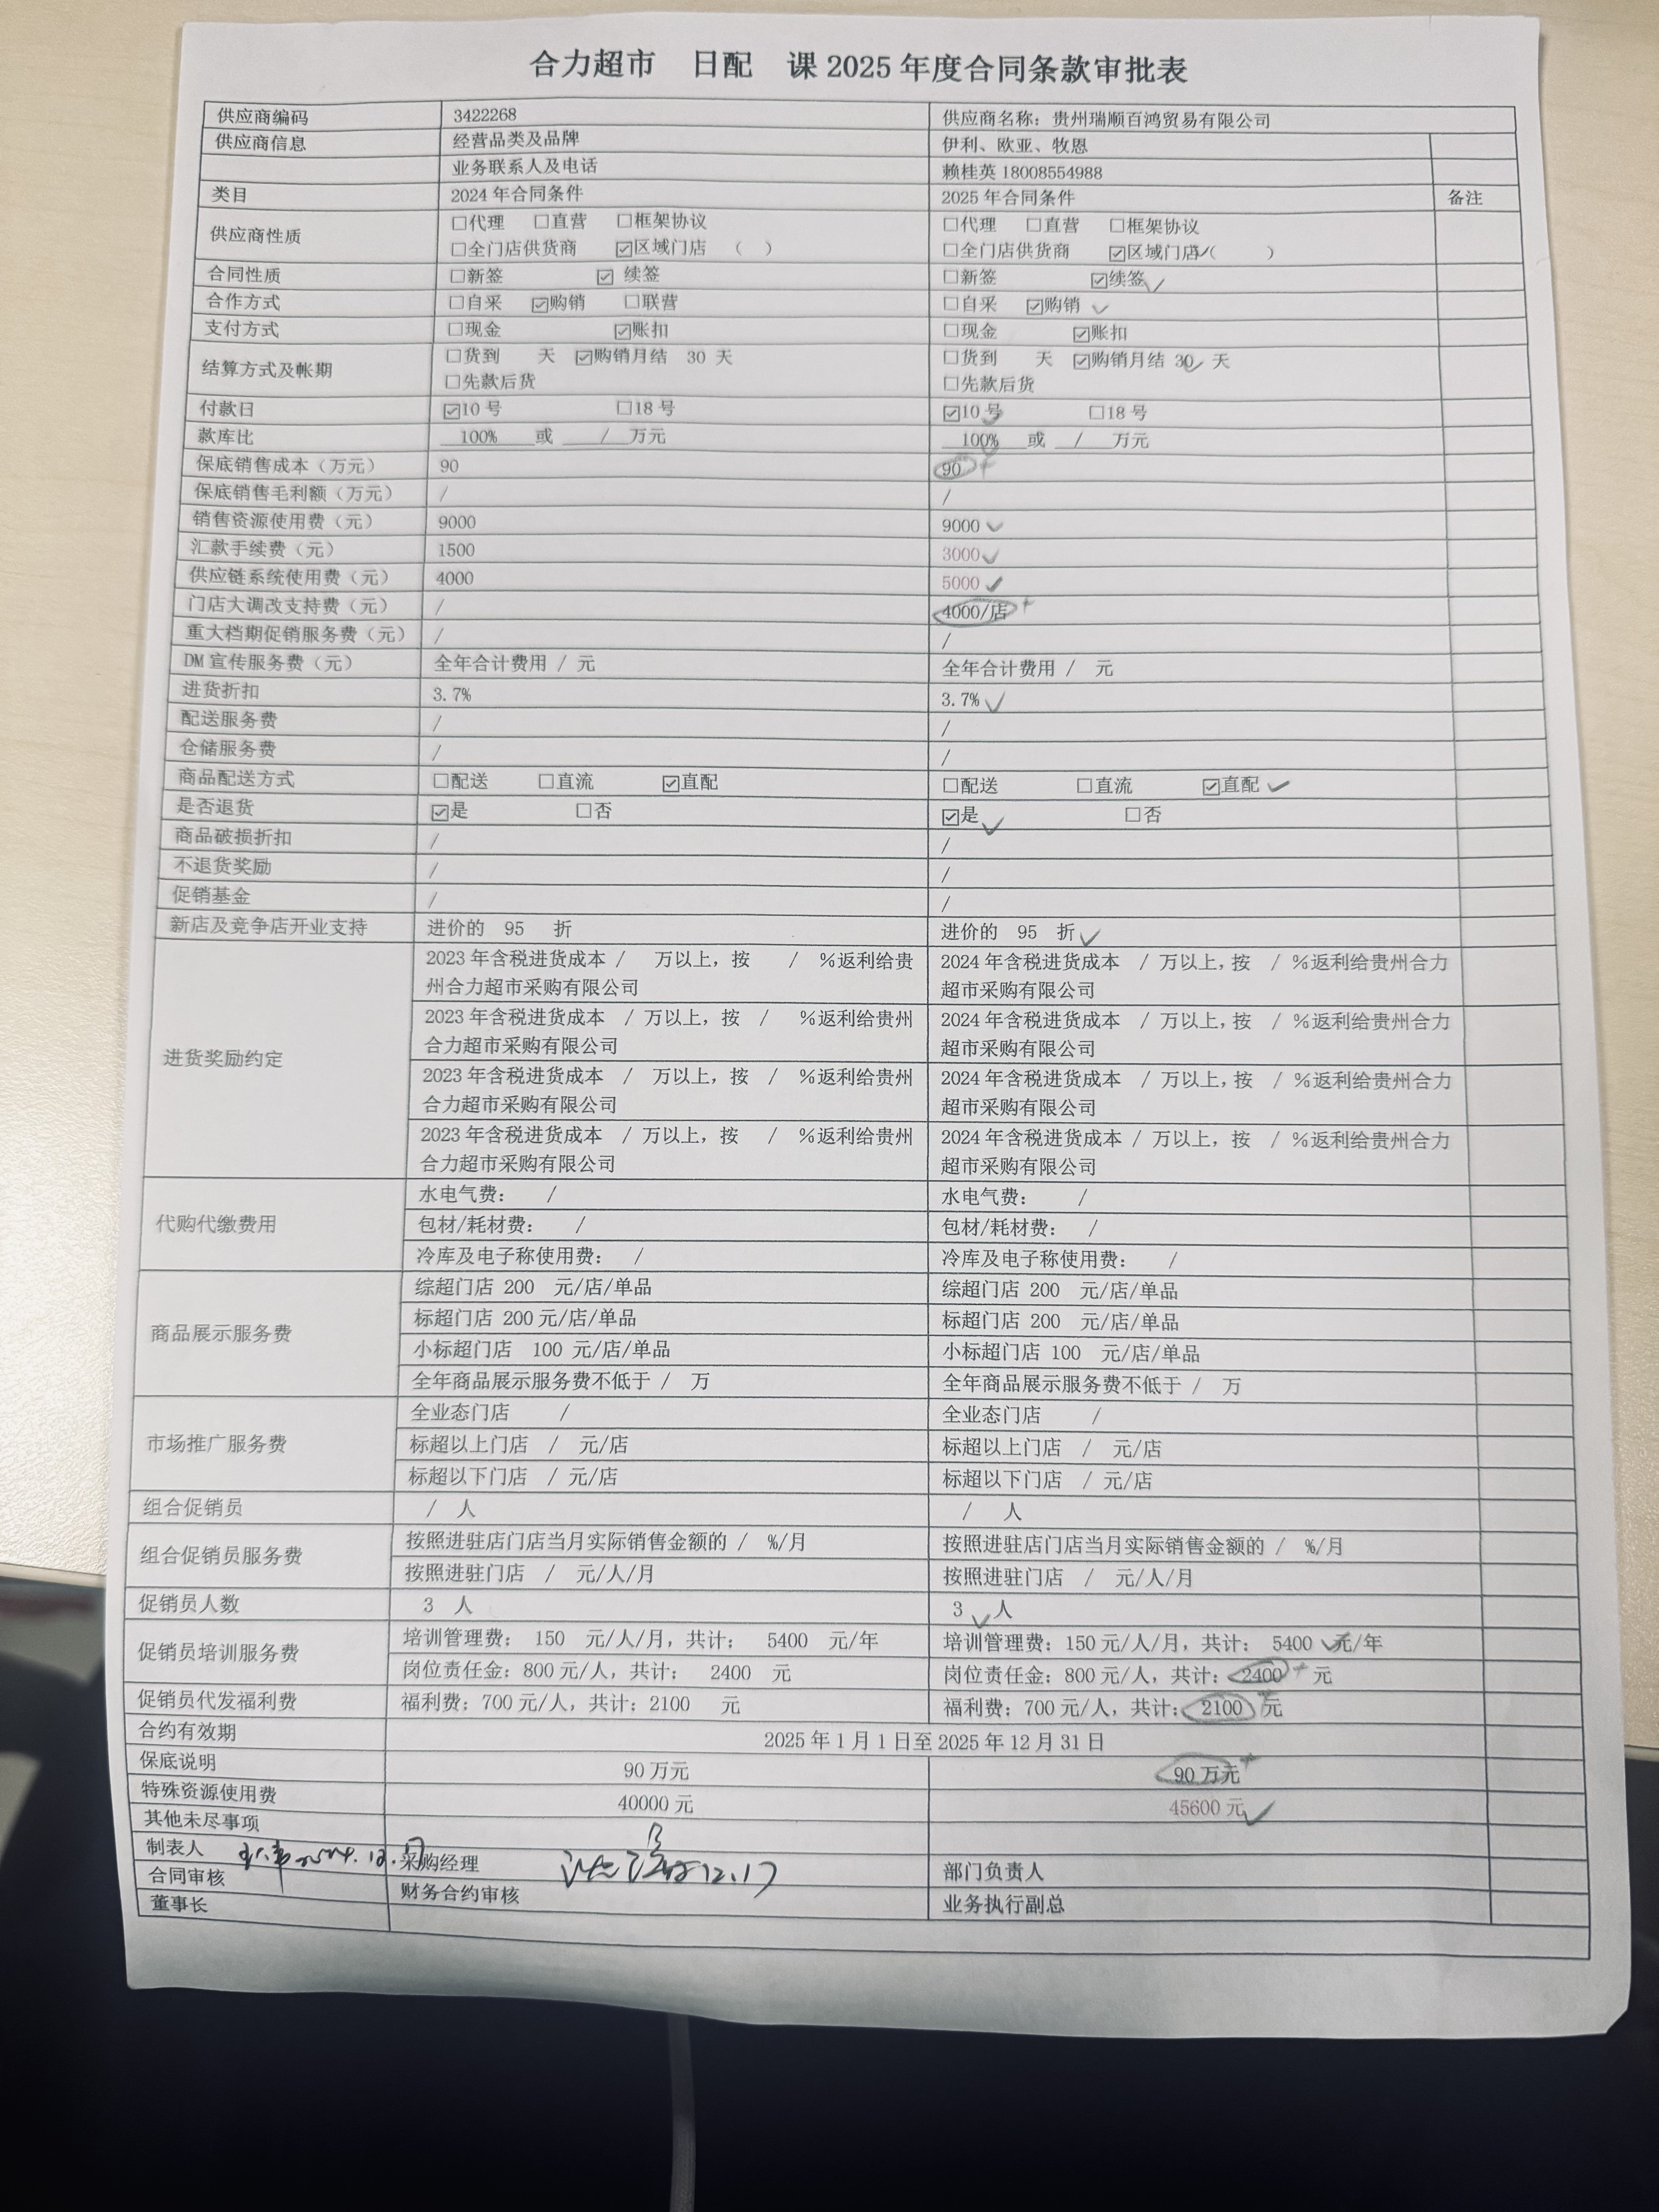 合力超市 日配 课 2025 年度合同条款审批表
供应商编码 3422268 供应商名称：贵州瑞顺百鸿贸易有限公司
供应商信息 经营品类及品牌 伊利、欧亚、牧恩
业务联系人及电话 赖桂英 18008554988
类目 2024 年合同条件 2025 年合同条件 备注
供应商性质 □代理 □直营 □框架协议 □代理 □直营 □框架协议
□全门店供货商 ☑区域门店 （ ） □全门店供货商 ☑区域门店（ ）
合同性质 □新签 ☑ 续签 □新签 ☑续签
合作方式 □自采 ☑购销 □联营 □自采 ☑购销
支付方式 □现金 ☑账扣 □现金 ☑账扣
结算方式及帐期 □货到 天 ☑购销月结 30 天 □货到 天 ☑购销月结 30 天
□先款后货 □先款后货
付款日 ☑10 号 □18 号 ☑10 号 □18 号
款库比 100% 或 / 万元 100% 或 / 万元
保底销售成本（万元） 90 90
保底销售毛利额（万元） / /
销售资源使用费（元） 9000 9000
汇款手续费（元） 1500 3000
供应链系统使用费（元） 4000 5000
门店大调改支持费（元） / 4000/店
重大档期促销服务费（元） / /
DM 宣传服务费（元） 全年合计费用 / 元 全年合计费用 / 元
进货折扣 3.7% 3.7%
配送服务费 / /
仓储服务费 / /
商品配送方式 □配送 □直流 ☑直配 □配送 □直流 ☑直配
是否退货 ☑是 □否 ☑是 □否
商品破损折扣 / /
不退货奖励 / /
促销基金 / /
新店及竞争店开业支持 进价的 95 折 进价的 95 折
进货奖励约定
2023 年含税进货成本 / 万以上，按 / %返利给贵 2024 年含税进货成本 / 万以上，按 / %返利给贵州合力
州合力超市采购有限公司 超市采购有限公司
2023 年含税进货成本 / 万以上，按 / %返利给贵州 2024 年含税进货成本 / 万以上，按 / %返利给贵州合力
合力超市采购有限公司 超市采购有限公司
2023 年含税进货成本 / 万以上，按 / %返利给贵州 2024 年含税进货成本 / 万以上，按 / %返利给贵州合力
合力超市采购有限公司 超市采购有限公司
2023 年含税进货成本 / 万以上，按 / %返利给贵州 2024 年含税进货成本 / 万以上，按 / %返利给贵州合力
合力超市采购有限公司 超市采购有限公司
代购代缴费用
水电气费： / 水电气费： /
包材/耗材费： / 包材/耗材费： /
冷库及电子称使用费： / 冷库及电子称使用费： /
商品展示服务费
综超门店 200 元/店/单品 综超门店 200 元/店/单品
标超门店 200 元/店/单品 标超门店 200 元/店/单品
小标超门店 100 元/店/单品 小标超门店 100 元/店/单品
全年商品展示服务费不低于 / 万 全年商品展示服务费不低于 / 万
市场推广服务费
全业态门店 / 全业态门店 /
标超以上门店 / 元/店 标超以上门店 / 元/店
标超以下门店 / 元/店 标超以下门店 / 元/店
组合促销员 / 人 / 人
组合促销员服务费
按照进驻店门店当月实际销售金额的 / %/月 按照进驻店门店当月实际销售金额的 / %/月
按照进驻门店 / 元/人/月 按照进驻门店 / 元/人/月
促销员人数 3 人 3 人
促销员培训服务费
培训管理费： 150 元/人/月，共计： 5400 元/年 培训管理费：150 元/人/月，共计： 5400 元/年
岗位责任金：800 元/人，共计： 2400 元 岗位责任金：800 元/人，共计：2400 元
促销员代发福利费 福利费：700 元/人，共计：2100 元 福利费：700 元/人，共计：2100 元
合约有效期 2025 年 1 月 1 日至 2025 年 12 月 31 日
保底说明 90 万元 90 万元
特殊资源使用费 40000 元 45600 元
其他未尽事项
制表人 采购经理 12.17 部门负责人
合同审核 财务合约审核 业务执行副总
董事长